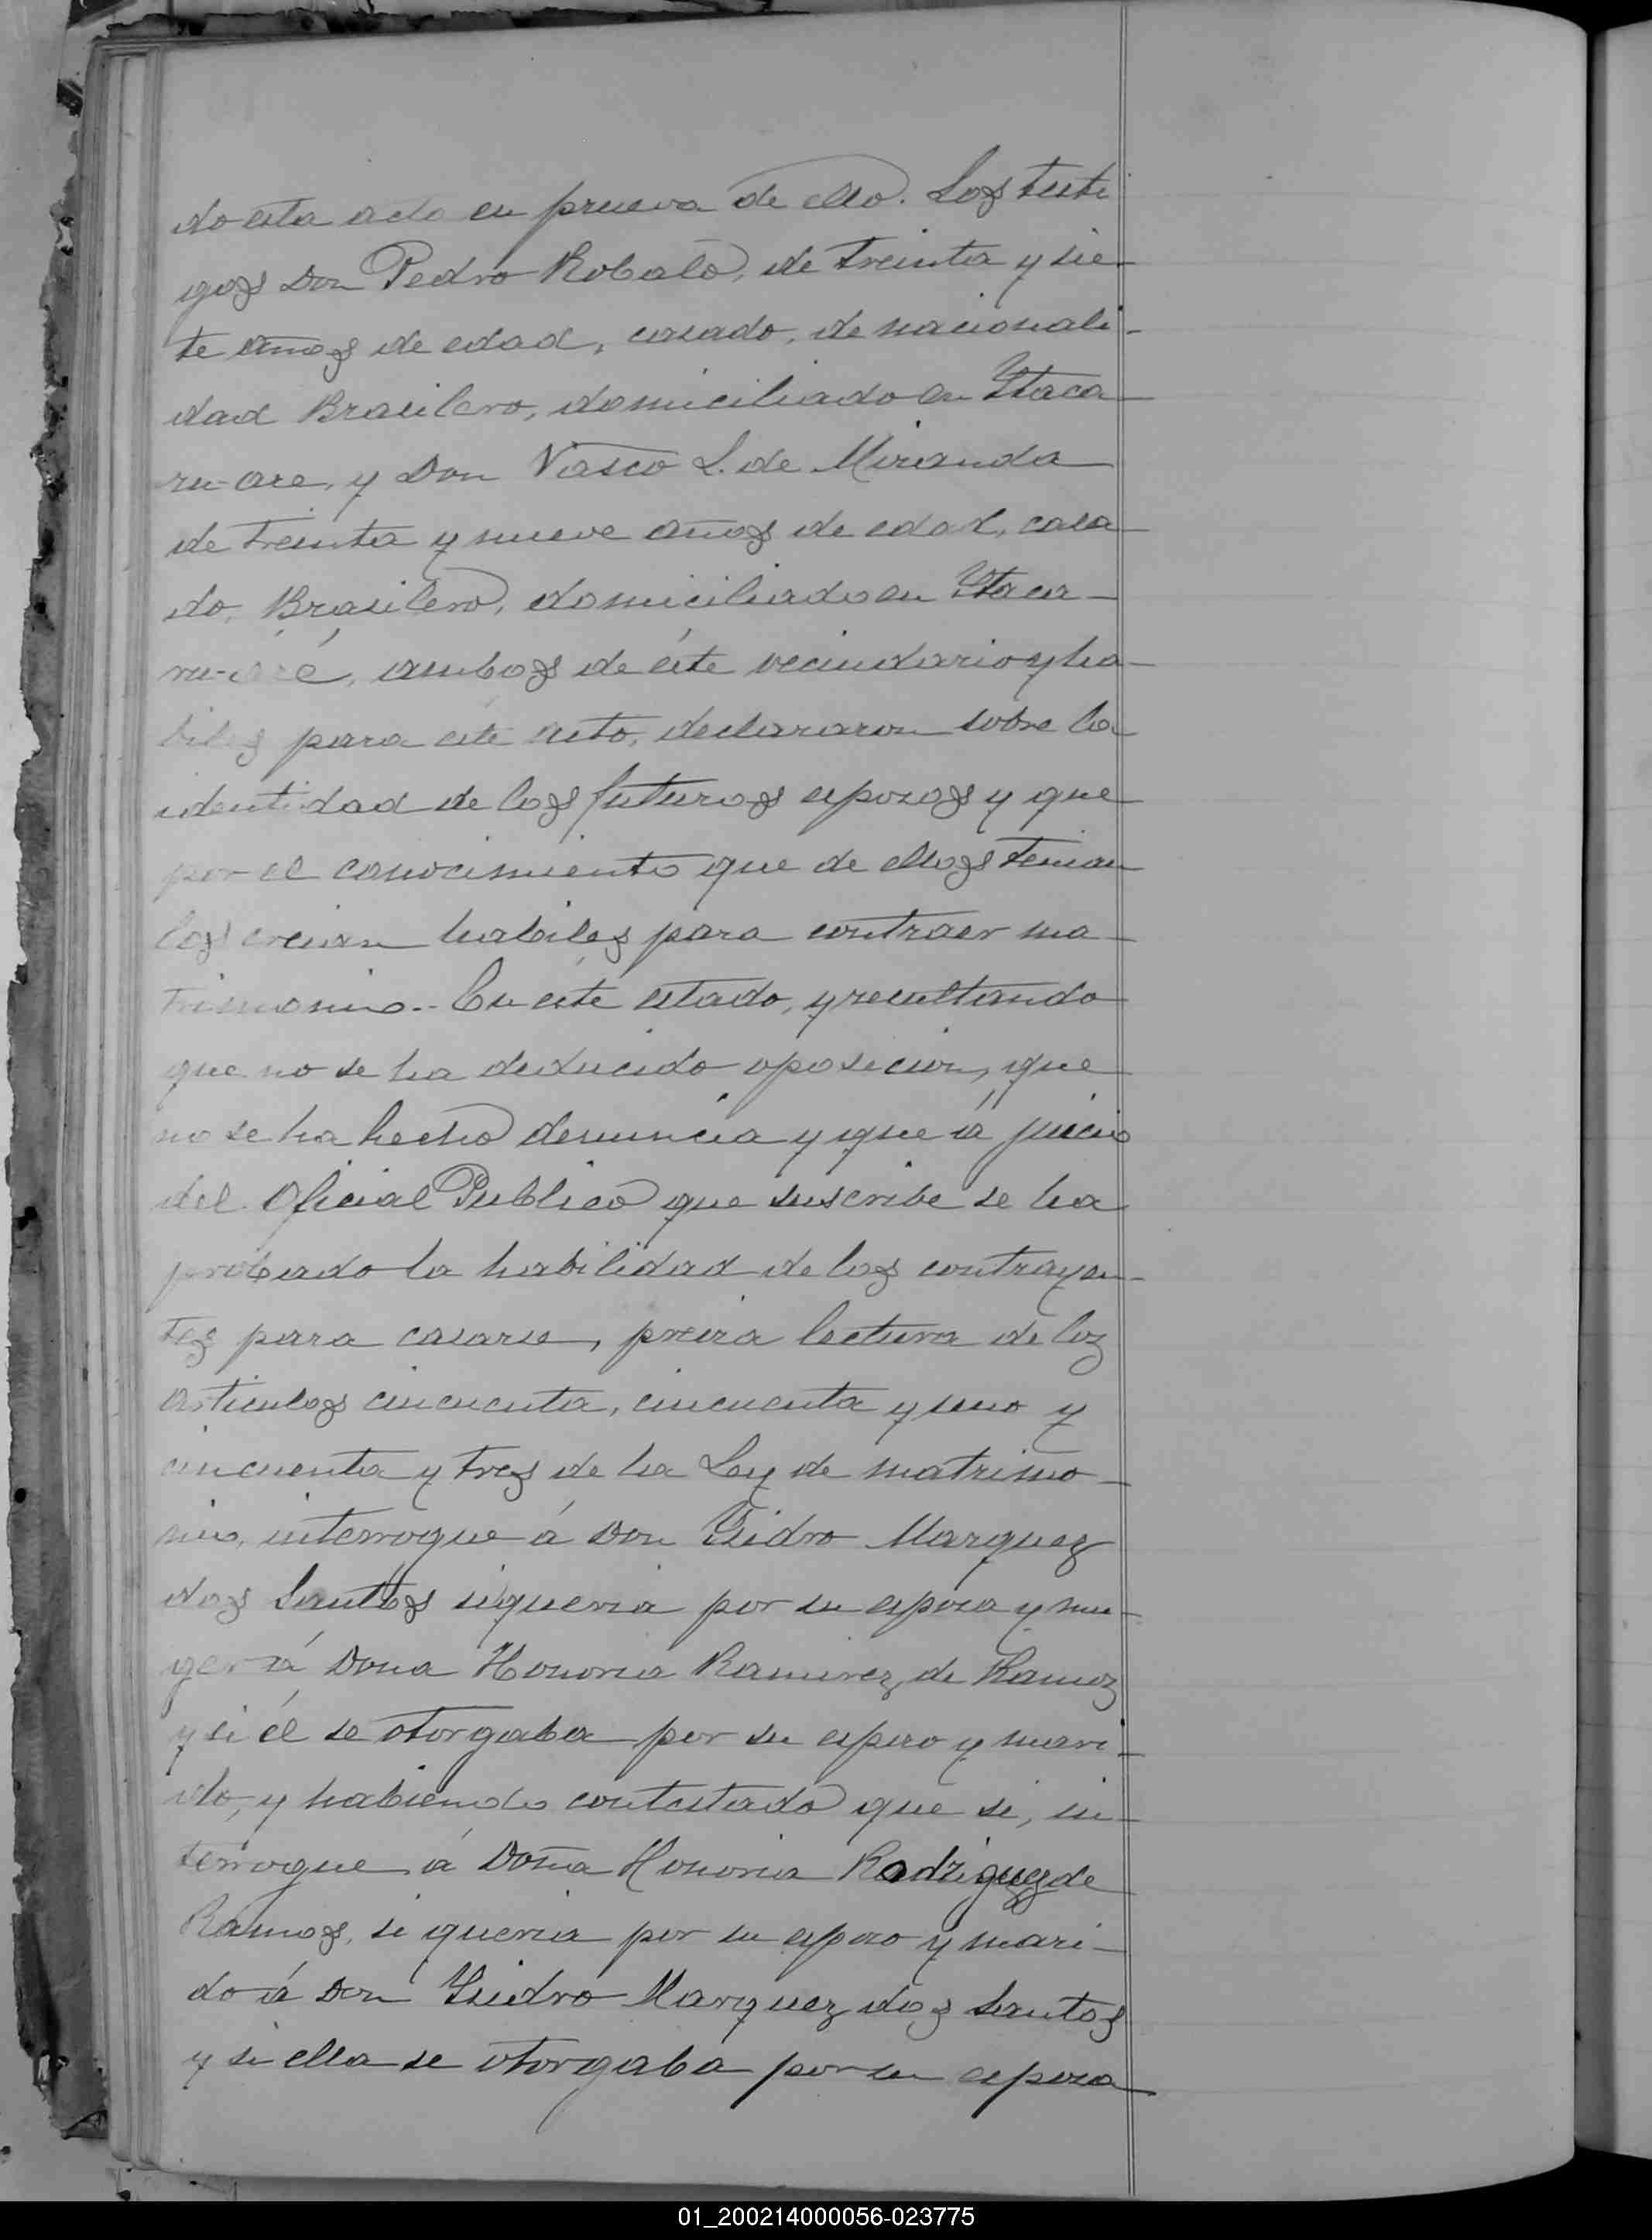 do esta acta en prueva de ello. Los testi
gos Don Pedro Robalo, de treinta y sie-
te años de edad, casado, de nacionali-
dad Brasilero, domiciliado en Ytaca-
ru-are, y Don Vasco L. de Miranda
de treinta y nueve años de edad, casa-
do, Brasilero, domiciliado en Ytaca-
ru-aré, ambos de éste vecindario y ha-
biles para este acto, declararon sobre la
identidad de los futuros esposos y que
por el conocimiento que de ellos tenian
los creian habiles para contraer ma-
trimonio.- En este estado, y resultando
que no se ha deducido oposicion, que
no se ha hecho denuncia y que á juicio
del Oficial Publico que suscribe se ha
probado la habilidad de los contrayen-
tes para casarse, previa lectura de los
articulos cincuenta, cincuenta y uno y
cincuenta y tres de la Ley de matrimo-
nio, interrogue á Don Ysidro Marquez
dos Santos si queria por su esposa y mu-
ger á Dona Honoria Ramirez de Ramos
y si él se otorgaba por su esposo y mari-
do, y habiendo contestado que si, in-
terrogue á Doña Honoria Rodriguez de
Ramos, si queria por su esposo y mari-
do á Don Ysidro Marquez dos Santos
y si ella se otorgaba por su esposa
01_200214000056-023775